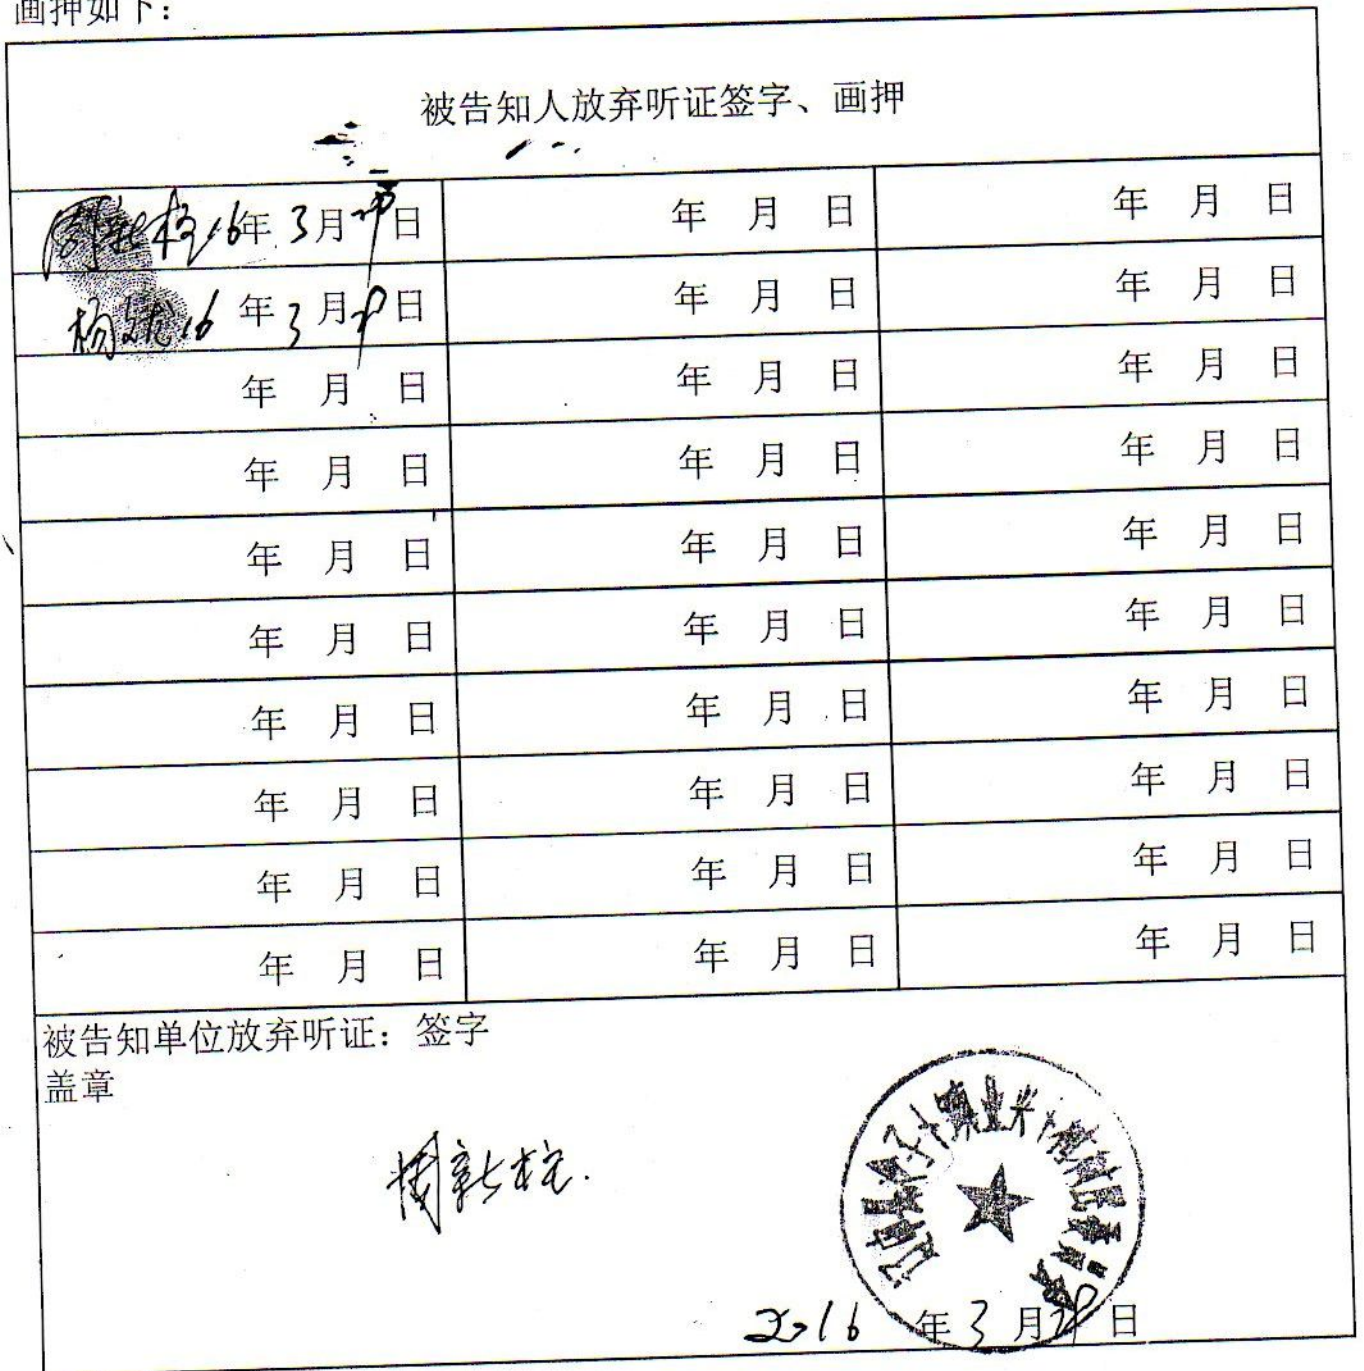 画押如下：
被告知人放弃听证签字、画押
周新柱 16年3月29日 年 月 日 年 月 日
杨 16年3月29日 年 月 日 年 月 日
年 月 日 年 月 日 年 月 日
年 月 日 年 月 日 年 月 日
年 月 日 年 月 日 年 月 日
年 月 日 年 月 日 年 月 日
年 月 日 年 月 日 年 月 日
年 月 日 年 月 日 年 月 日
年 月 日 年 月 日 年 月 日
年 月 日 年 月 日 年 月 日
被告知单位放弃听证：签字
盖章
周新柱
村民委员会
2016年3月29日